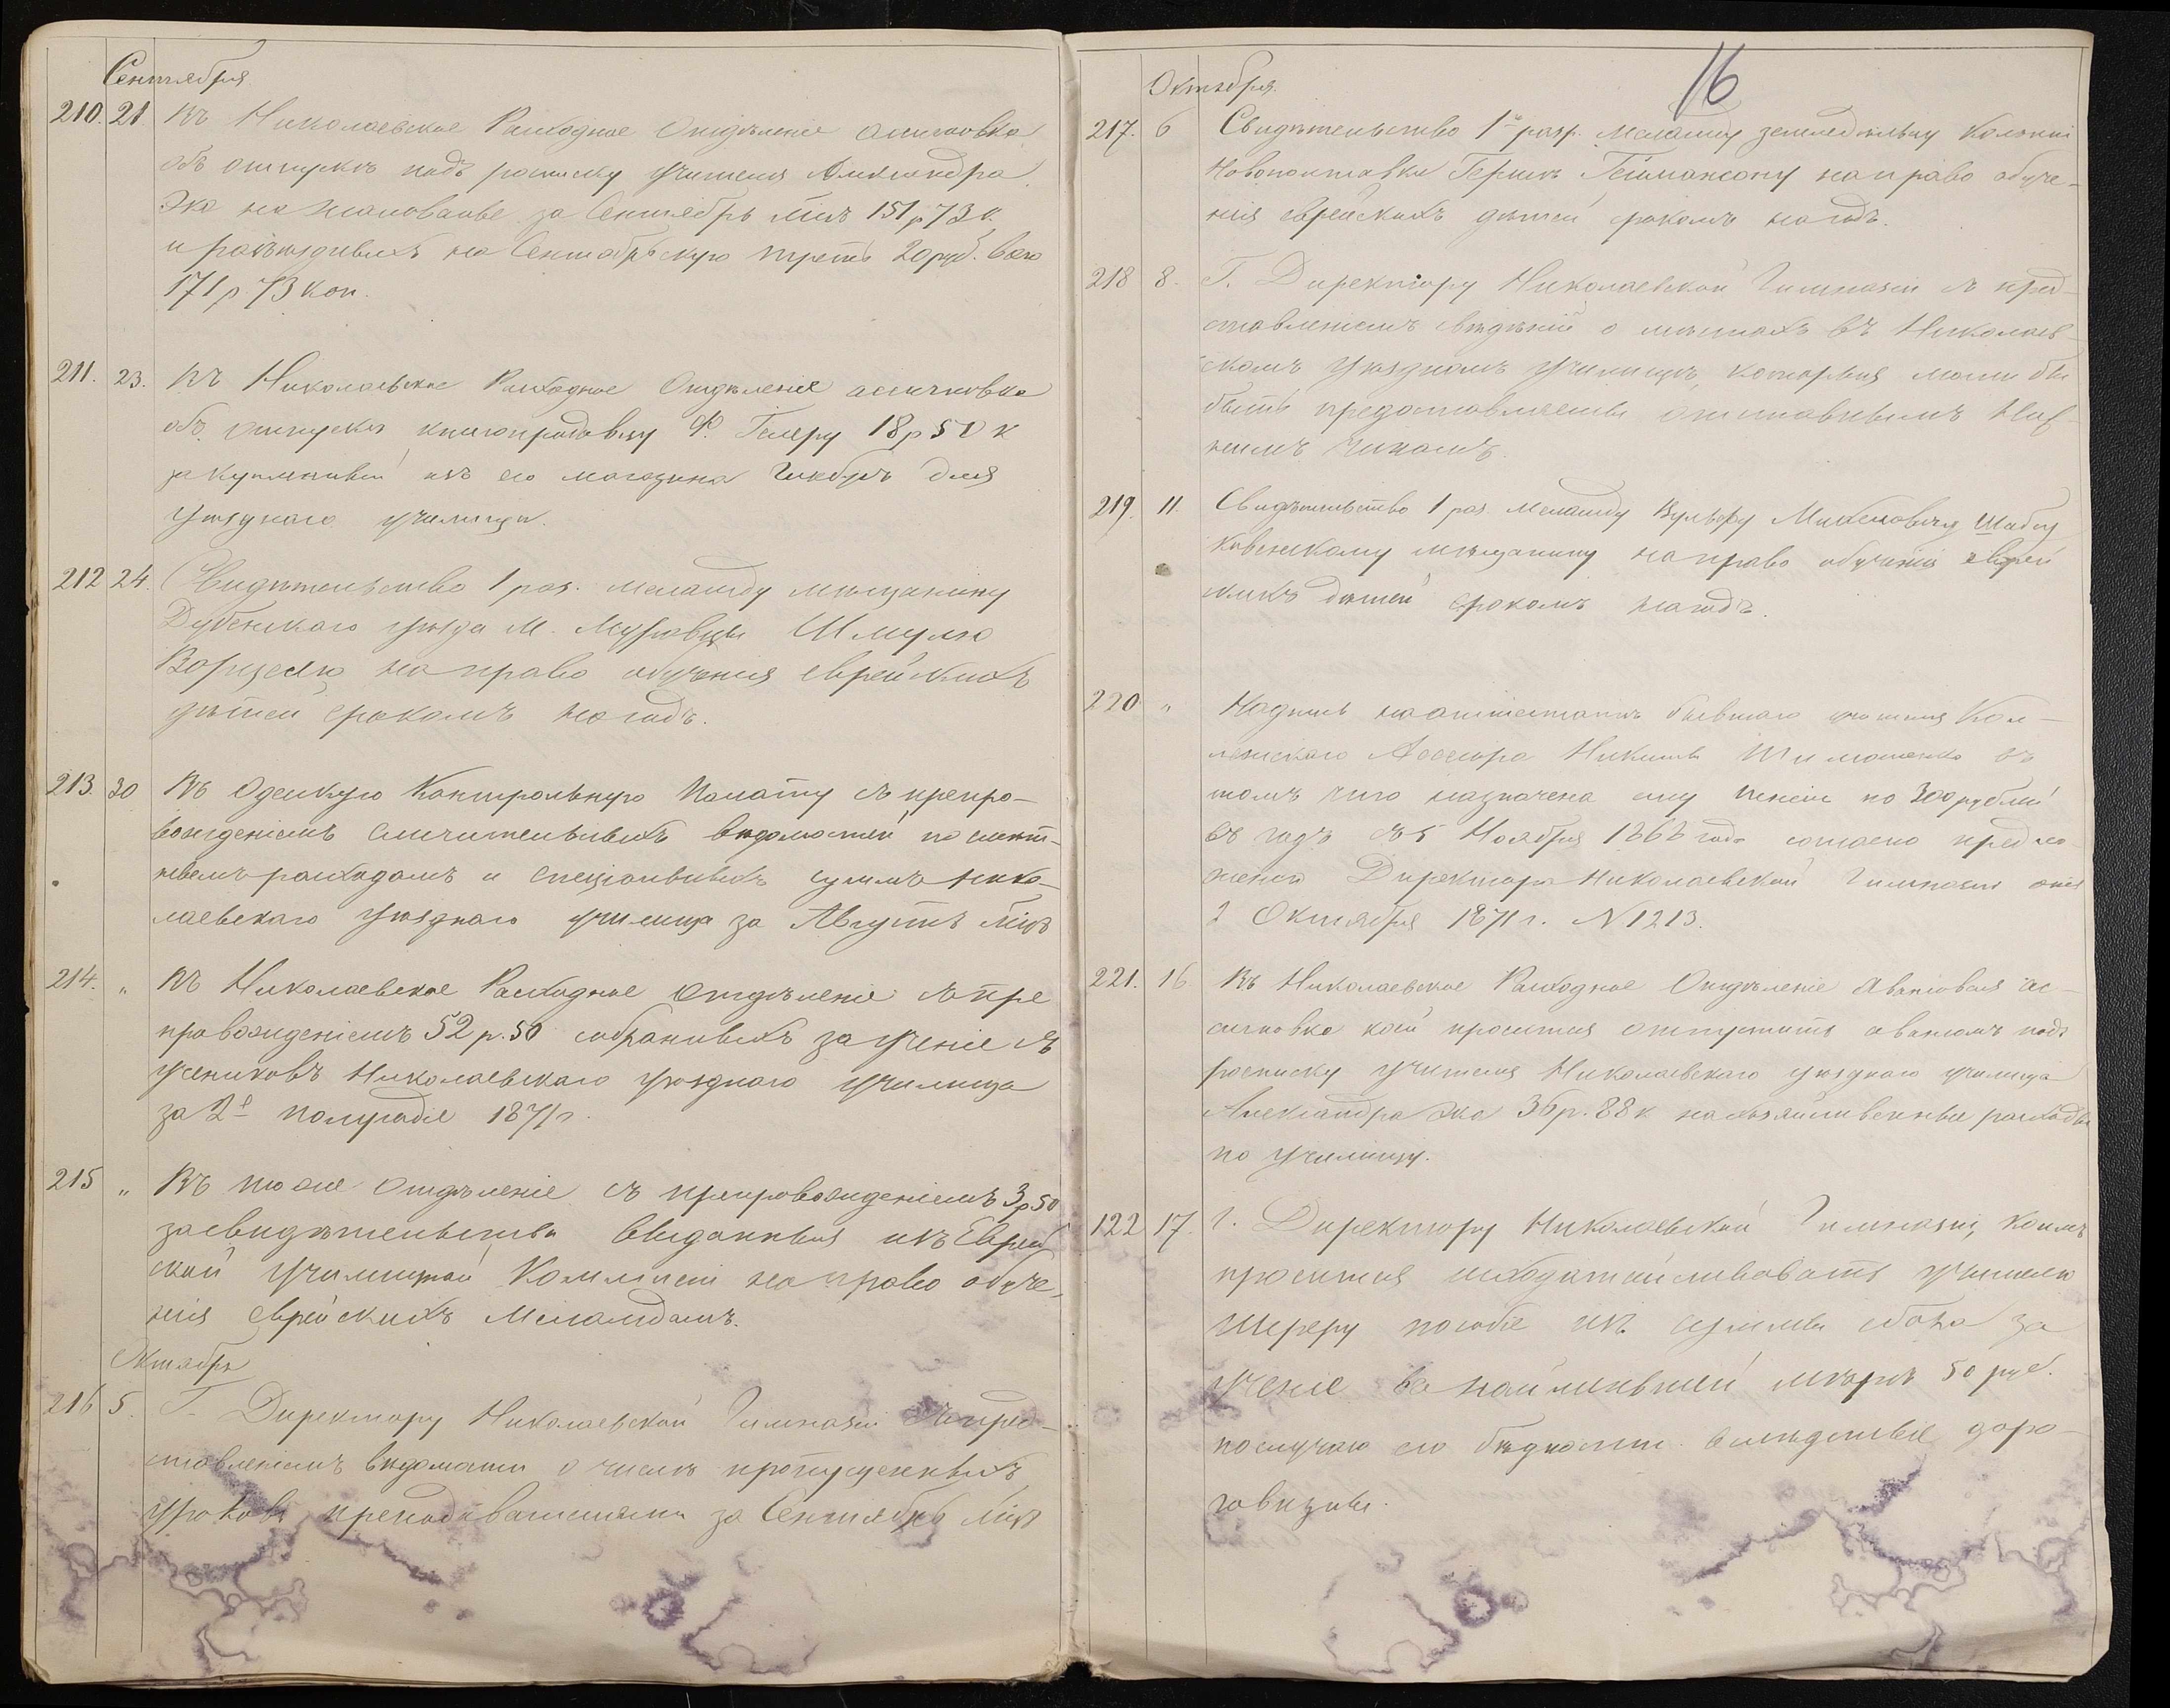 Сентября
210. 21 Въ Николаевское Расходное Отдѣленіе ассигновка
объ отпускѣ подъ росписку учителя Александра
Эка на жалованье за Сентябрь м-цъ 151 р 73 к.
и разъѣздныхъ на Сентябрьскую треть 20 руб. всего
171 р. 73 коп.
211. 23. Въ Николаевское Расходное Отдѣленіе ассигновка
объ отпускѣ книгопродавцу Ф. Гелеру 18 р 50 к
за купленный изъ его магазина для
уѣзднаго училища.
212 24. Свидѣтельство 1 раз. меламду мѣщанину
Дубенскаго уѣзда М. Муравцы Шмулю
на право обученія еврейскихъ
дѣтей срокомъ на годъ.
213. 30 Въ Одесскую Контрольную Палату съ препро-
вожденіемъ сличительныхъ вѣдомостей по смѣт-
нымъ расходамъ и спеціальныхъ суммъ Нико-
лаевскаго уѣзднаго училища за Августъ м-цъ
214. „ Въ Николаевское Расходное Отдѣленіе съ пре
провожденіемъ 52 р. 50 собранныхъ за ученіе съ
учениковъ Николаевскаго уѣзднаго училища
за 2е полугодіе 1871 г.
215 „ Въ тоже Отдѣленіе съ препровожденіемъ 3 р 50
за свидѣтельства выданныя изъ Еврей
ской училищной Коммисіи на право обуче-
нія еврейскихъ Меламдамъ.
Октябрь
216 5. Г. Директору Николаевской Гимназіи съ пред-
ставленіемъ вѣдомости о числѣ пропущенныхъ
уроковъ преподавателями за Сентябрь м-цъ
16
Октября.
217. 6 Свидѣтельство 1го разр. меламду земледѣльцу колоніи
Новополтавки Гершк Геймансону на право обуче-
нія еврейскихъ дѣтей срокомъ на годъ.
218 8. Г. Директору Николаевской Гимназіи съ пред-
ставленіемъ свѣдѣній о мѣстахъ въ Николаев-
скомъ уѣздномъ училищѣ, которыя могли бы
быть предоставляемы отставнымъ ниж-
нимъ чинамъ.
219. 11. Свидѣтельство 1 раз. меламду Вульфу Шабсу
Ковенскому мѣщанину на право обученія еврей
скихъ дѣтей срокомъ на годъ.
220 „ Надпись на аттестатѣ бывшаго учителя Кол-
лежскаго Ассесора Никиты въ
томъ что назначена ему пенсія по 300 рублей
въ годъ съ 5 Ноября 1868 года согласно предло-
женія Директора Николаевской Гимназіи отъ
2 Октября 1871 г. N 1213.
221. 16 Въ Николаевское Расходное Отдѣленіе авансовая ас-
сигновка коей просится отпустить авансомъ подъ
росписку учителя Николаевскаго уѣзднаго училища
Александра Эка 36 р. 88 к на хозяйственные расходы
по училищу.
122 17. Г. Директору Николаевской Гимназіи, коимъ
просится исходатайствовать учителю
Шереру пособіе изъ суммы сбора за
ученіе въ наименьшей мѣрѣ 50 руб.
по случаю его бѣдности вслѣдствіе доро-
говизны.